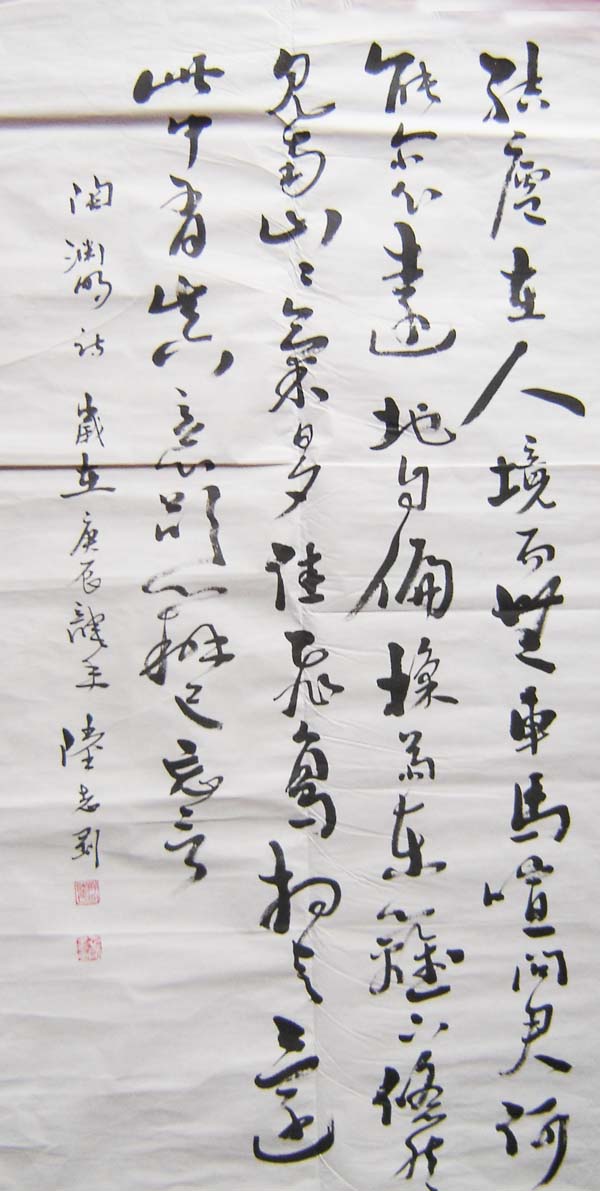 結廬在人境而無車馬喧問君何
能尔心遠地自偏採菊東籬下悠然
見南山々氣日夕佳飛鳥相与還
此中有真意欲辨已忘言
陶淵明詩 歲在庚辰龍年 陸志剛